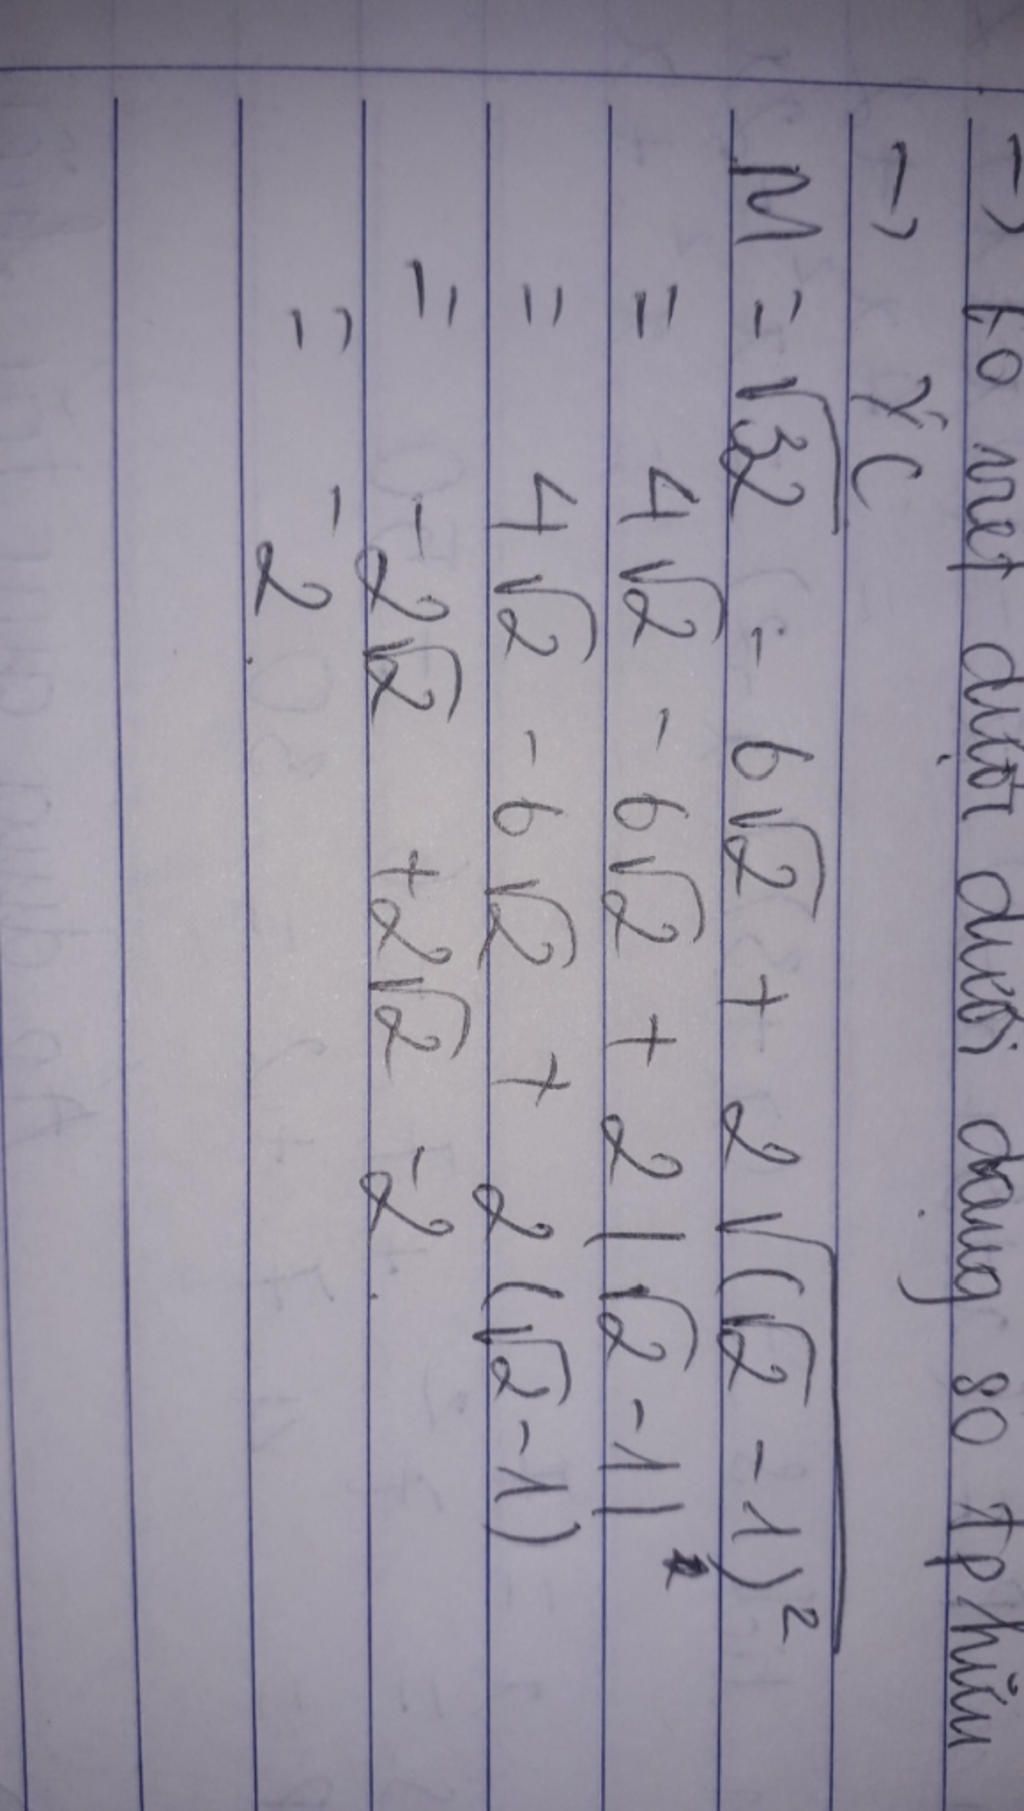 → ko viet dưới dưới dạng so Tphửu
→ γc
M = √32 - 6√2 + 2√(√2 - 1)²
= 4√2 - 6√2 + 2|√2 - 1|
= 4√2 - 6√2 + 2(√2 - 1)
= -2√2 + 2√2 - 2
= -2